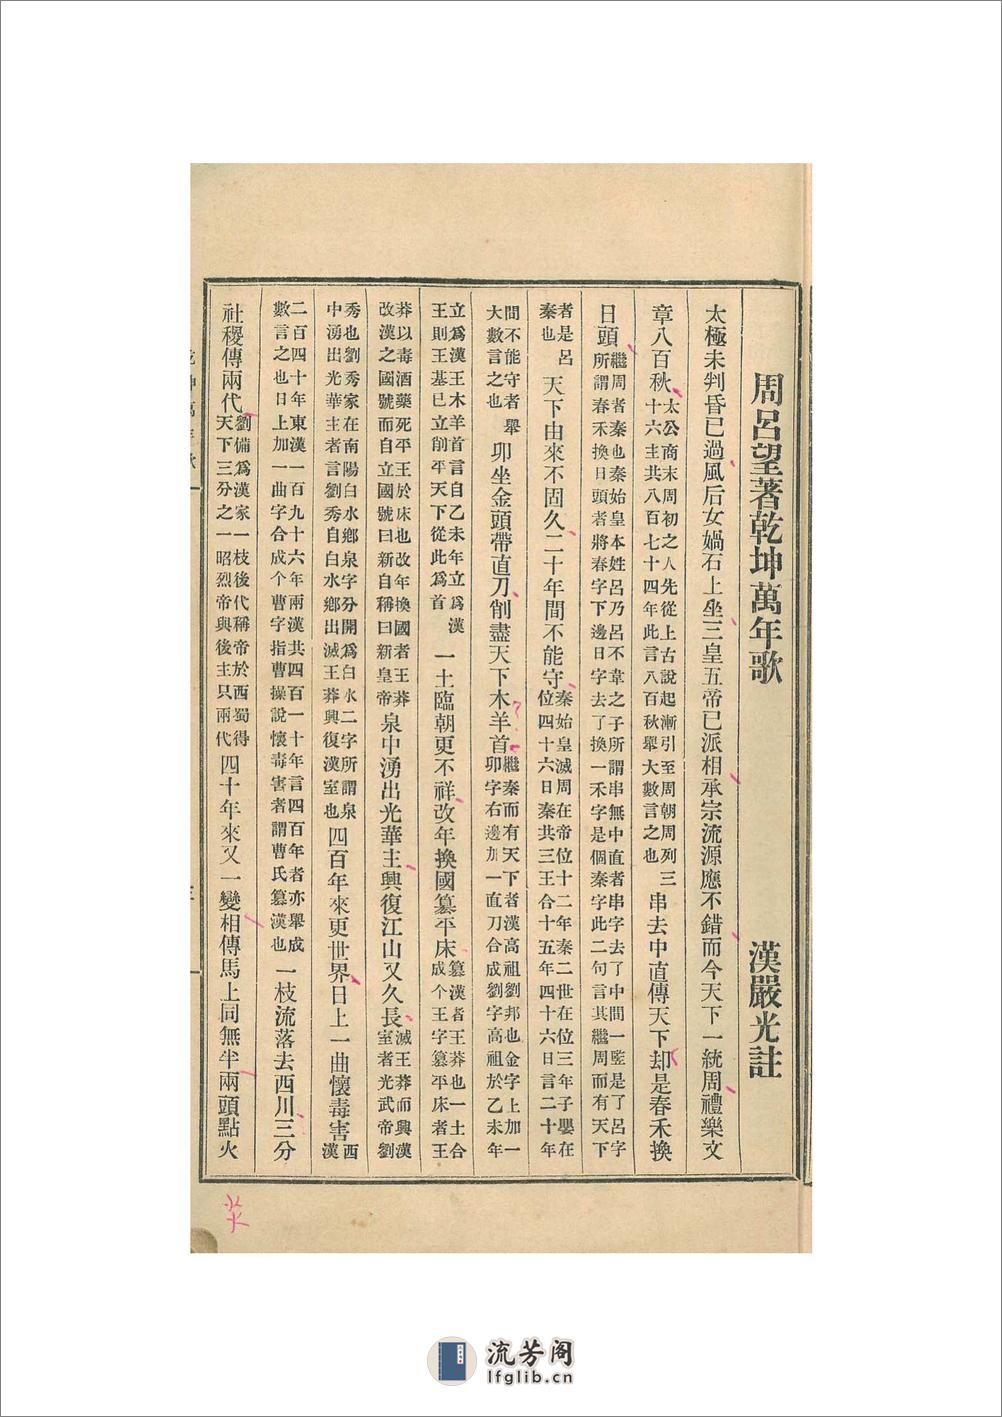 周呂望著乾坤萬年歌　漢嚴光註
太極未判昏已過風后女媧石上坐三皇五帝已派相承宗流源應不錯而今天下一統周禮樂文
章八百秋太公商末周初之人先從上古說起漸引至周朝周列三十六主共八百七十四年此言八百秋舉大數言之也串去中直傳天下却是春禾換
日頭繼周者秦也秦始皇本姓呂乃呂不韋之子所謂串無中直者串字去了中間一竪是了呂字所謂春禾換日頭者將春字下邊日字去了換一禾字是個秦字此二句言其繼周而有天下
者是呂秦也天下由來不固久二十年間不能守秦始皇滅周在帝位十二年秦二世在位三年子嬰在位四十六日秦共三王合十五年四十六日言二十年
間不能守者舉大數言之也卯坐金頭帶直刀削盡天下木羊首繼秦而有天下者漢高祖劉邦也金字上加一卯字右邊加一直刀合成劉字高祖於乙未年
立爲漢王木羊首言自乙未年立爲漢王則王基已立削平天下從此爲首一土臨朝更不祥改年換國篡平床篡漢者王莽也一土合成个王字篡平床者王
莽以毒酒藥死平王於床也改年換國者王莽改漢之國號而自立國號曰新自稱曰新皇帝泉中湧出光華主興復江山又久長滅王莽而興漢室者光武帝劉
秀也劉秀家在南陽白水鄉泉字分開爲白水二字所謂泉中湧出光華主者言劉秀自白水鄉出滅王莽興復漢室也四百年來更世界日上一曲懷毒害西漢
二百四十年東漢一百九十六年兩漢共四百一十年言四百年者亦舉成數言之也日上加一曲字合成个曹字指曹操說懷毒害者謂曹氏篡漢也一枝流落去西川三分
社稷傳兩代劉備爲漢家一枝後代稱帝於西蜀得天下三分之一昭烈帝與後主只兩代四十年來又一變相傳馬上同無半兩頭點火
流芳阁
lfglib.cn